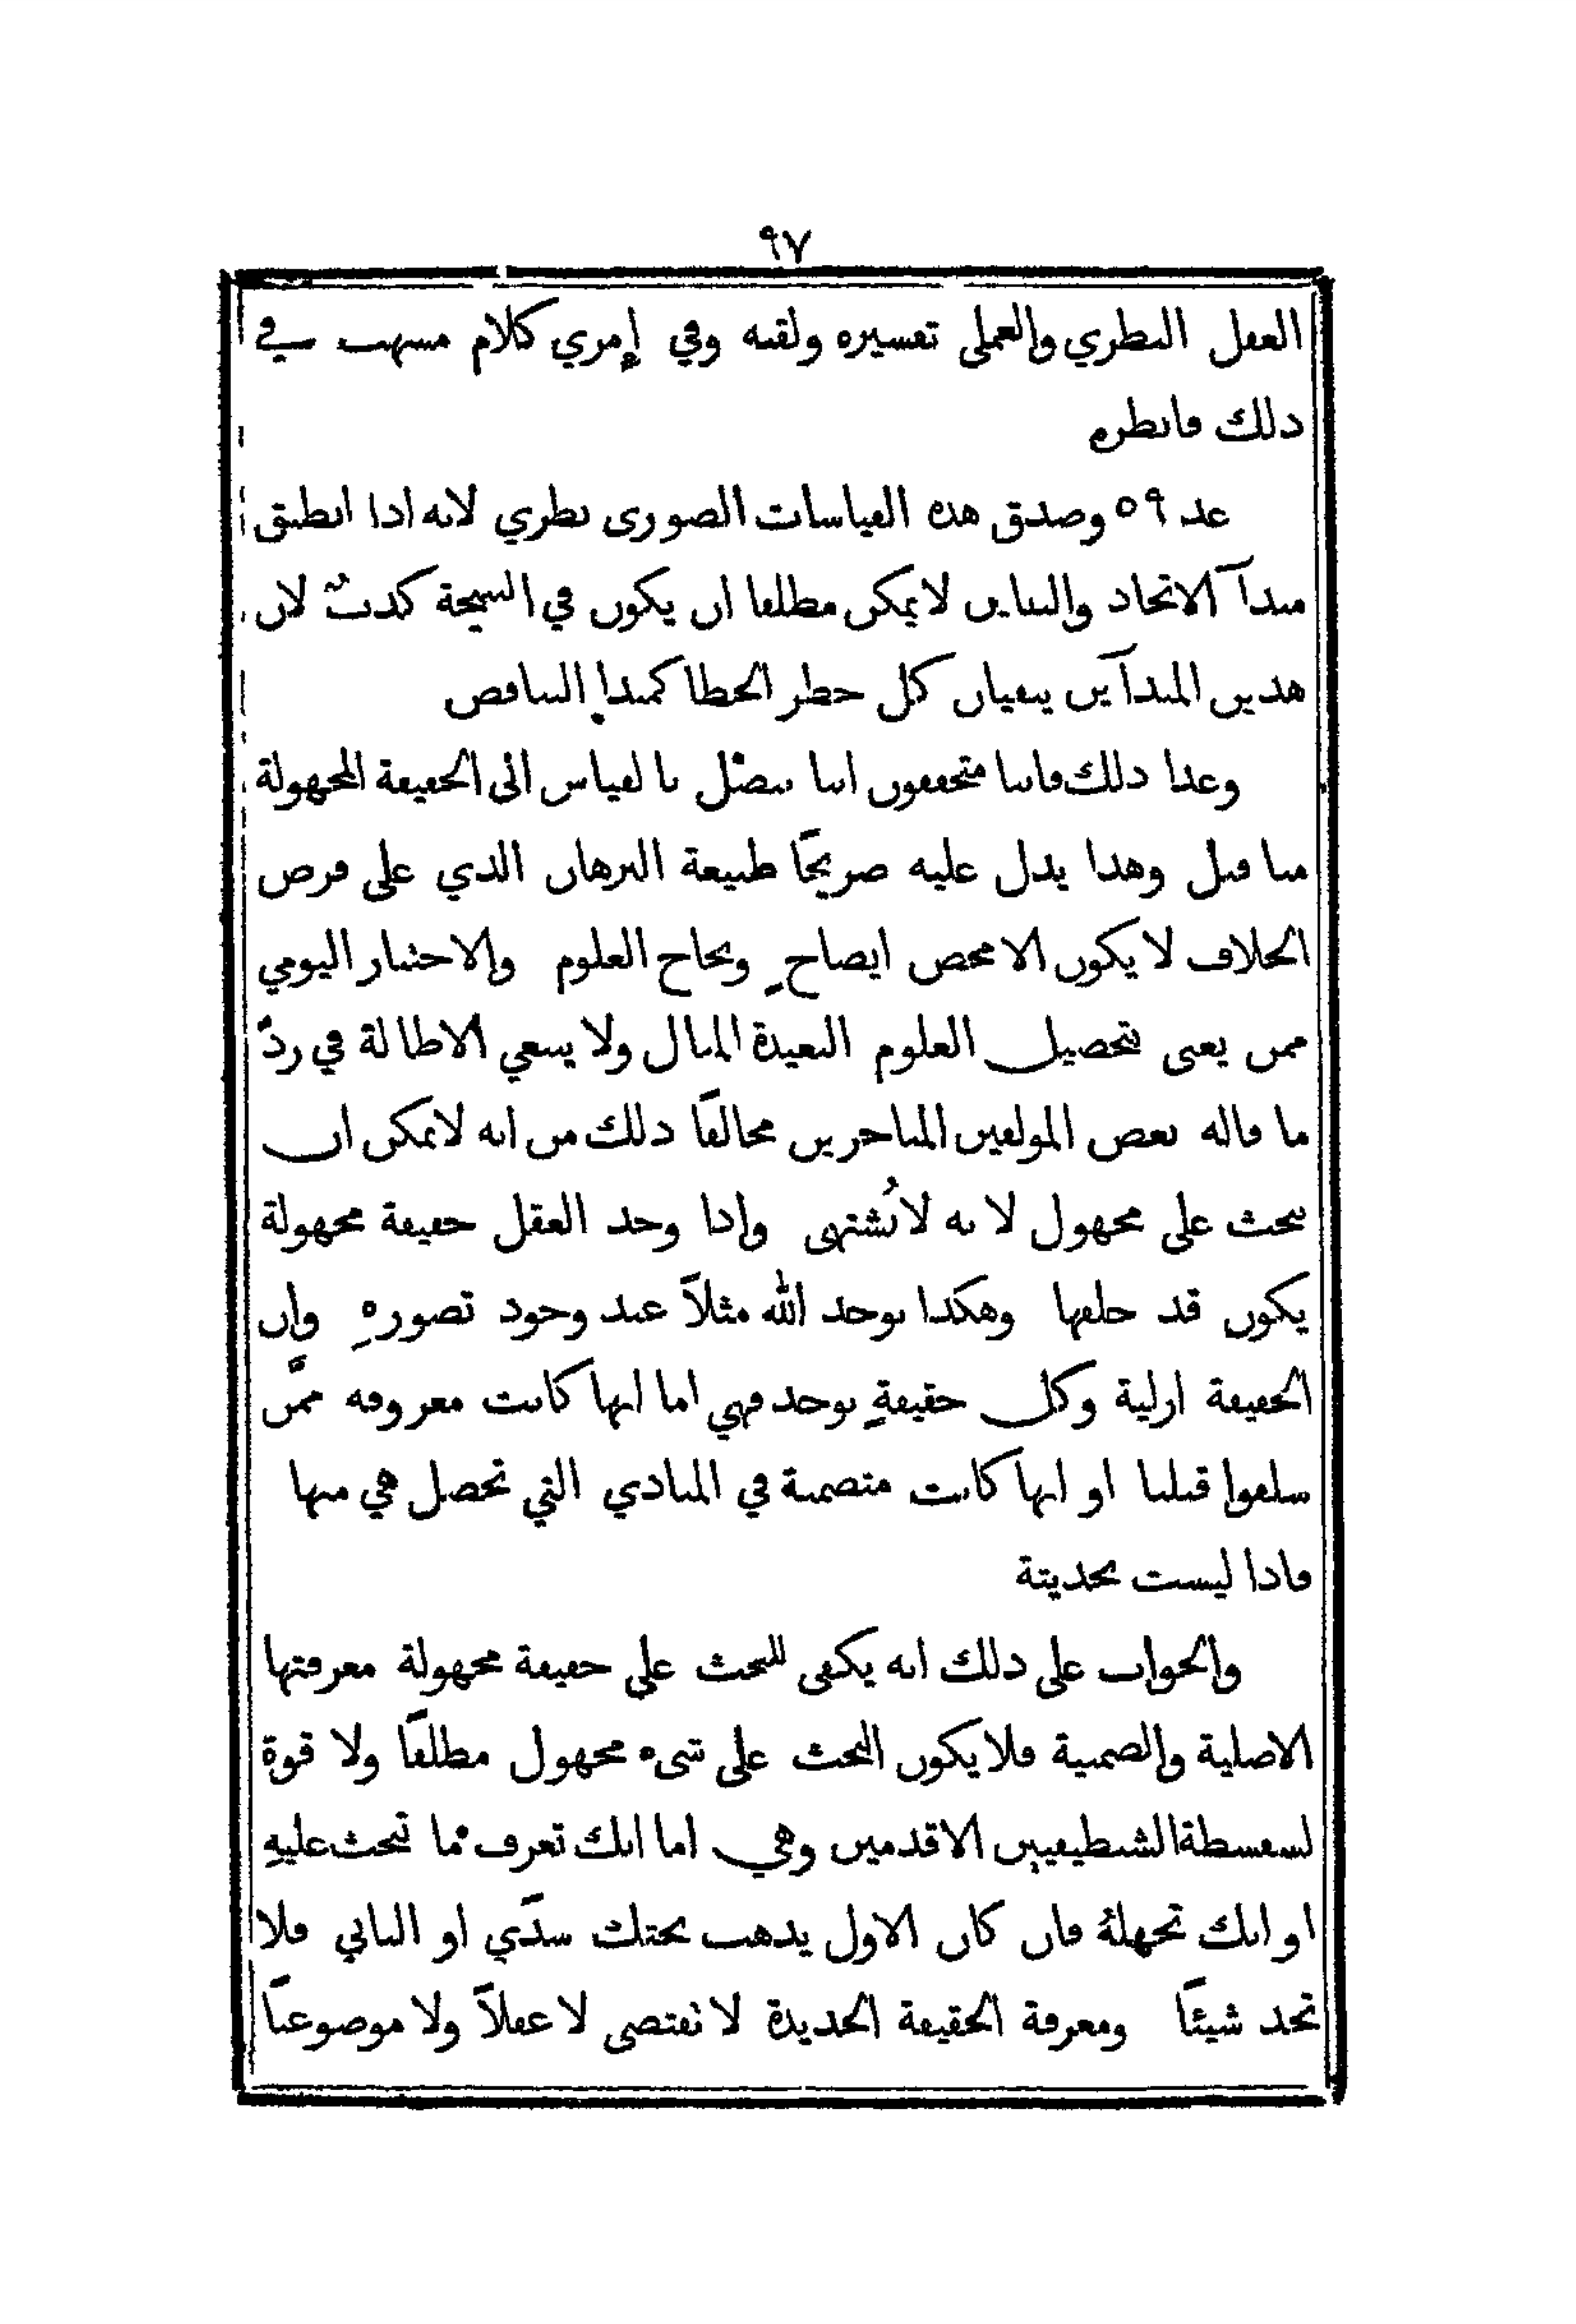 ٩٧
العقل النظري والعملي تفسيره ولقبه وفي إمري كلام مسهب في
ذلك فانظره
عد ٥٩ وصدق هذه القياسات الصوري نظري لانه اذا انطبق
مبدآ الاتحاد والتباين لا يمكن مطلقا ان يكون في النتيجة كذبٌ لان
هذين المبدآين ينفيان كل خطر الخطا كمبدإ التناقض
وعدا ذلك فاننا متحققون اننا نتصل بالقياس الى الحقيقة المجهولة
منا قبل وهذا يدل عليه صريحًا طبيعة البرهان الذي على فرض
الخلاف لا يكون الا محض ايضاحٍ ونجاح العلوم والاختبار اليومي
ممن يعنى بتحصيل العلوم البعيدة المنال ولا ينبغي الاطالة في ردّ
ما قاله بعض المولفين المتاخرين مخالفًا ذلك من انه لا يمكن ان
نبحث على مجهول لانه لا يُشتهى واذا وجد العقل حقيقة مجهولة
يكون قد خلقها وهكذا يوجد الله مثلاً عند وجود تصورهِ وان
الحقيقة ازلية وكل حقيقةٍ توجد فهي اما انها كانت معروفه ممَّن
سلفوا قبلنا او انها كانت متضمنة في المبادي التي تحصل هي منها
فاذا ليست بحديثة
والجواب على ذلك انه يكفي للبحث على حقيقة مجهولة معرفتها
الاصلية والضمنية فلا يكون البحث على شيء مجهول مطلقًا ولا قوة
لسفسطة الشطيفيين الاقدمين وهي اما انك تعرف ما تبحث عليهِ
او انك تجهلهُ فان كان الاول يذهب بحثك سدًى او الثاني فلا
تجد شيئًا ومعرفة الحقيقة الجديدة لا تقتضي لا عقلاً ولا موضوعًا